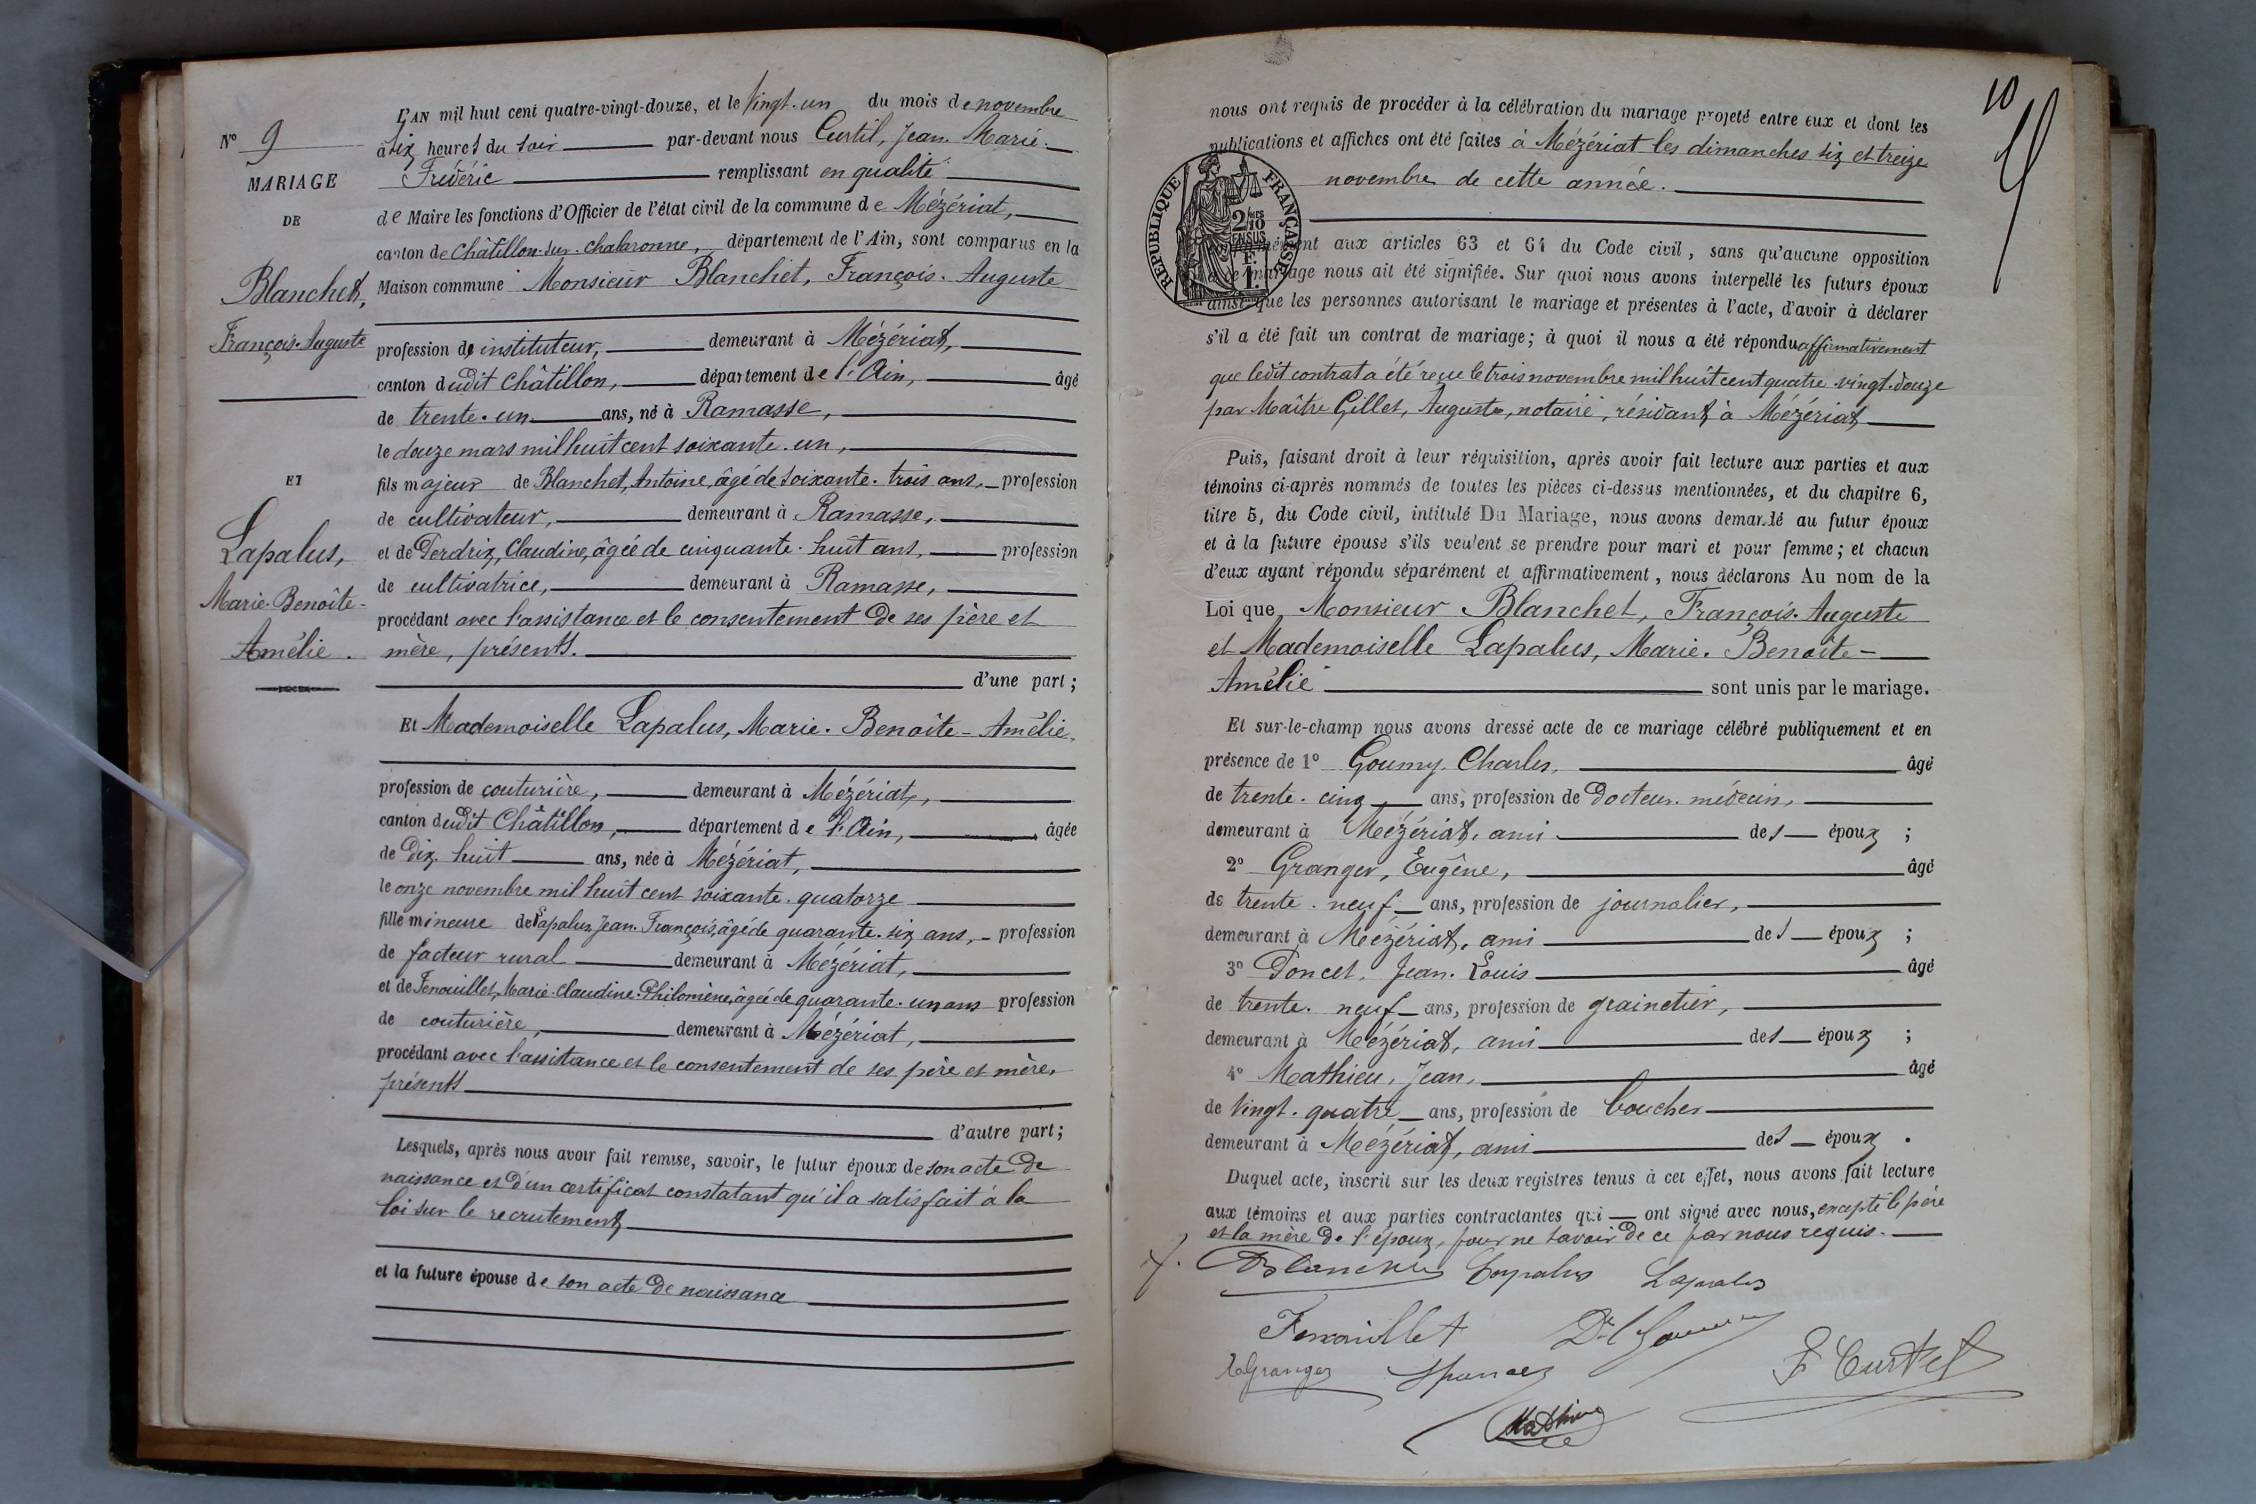 N° 9
MARIAGE
DE
Blanchet,
François-Auguste
ET
Lapalus,
Marie-Benoîte-
Amélie.
L'AN mil huit cent quatre-vingt-douze, et le vingt-un du mois de novembre
à six heures du soir par-devant nous Curtil, Jean-Marie-
Frédéric remplissant en qualité
de Maire les fonctions d'Officier de l'état civil de la commune de Mézériat,
canton de Châtillon-sur-Chalaronne, département de l'Ain, sont comparus en la
Maison commune Monsieur Blanchet, François-Auguste
profession de instituteur, demeurant à Mézériat,
canton dudit Châtillon, département de l'Ain, âgé
de trente-un ans, né à Ramasse,
le douze mars mil huit cent soixante-un,
fils majeur de Blanchet, Antoine, âgé de soixante-trois ans, profession
de cultivateur, demeurant à Ramasse,
et de Perdrix, Claudine, âgée de cinquante-huit ans, profession
de cultivatrice, demeurant à Ramasse,
procédant avec l'assistance et le consentement de ses père et
mère, présents.
d'une part;
Et Mademoiselle Lapalus, Marie-Benoîte-Amélie,
profession de couturière, demeurant à Mézériat,
canton dudit Châtillon, département de l'Ain, âgée
de dix-huit ans, née à Mézériat,
le onze novembre mil huit cent soixante-quatorze
fille mineure de Lapalus, Jean-François, âgé de quarante-six ans, profession
de facteur rural demeurant à Mézériat,
et de Fenouillet, Marie-Claudine-Philomène, âgée de quarante-un ans profession
de couturière, demeurant à Mézériat,
procédant avec l'assistance et le consentement de ses père et mère,
présents
d'autre part;
Lesquels, après nous avoir fait remise, savoir, le futur époux de son acte de
naissance et d'un certificat constatant qu'il a satisfait à la
loi sur le recrutement
et la future épouse de son acte de naissance
10
nous ont requis de procéder à la célébration du mariage projeté entre eux et dont les
publications et affiches ont été faites à Mézériat les dimanches six et treize
novembre de cette année.
RÉPUBLIQUE FRANÇAISE
2/10 EN SUS
1 F.
aux articles 63 et 64 du Code civil, sans qu'aucune opposition
à ce mariage nous ait été signifiée. Sur quoi nous avons interpellé les futurs époux
ainsi que les personnes autorisant le mariage et présentes à l'acte, d'avoir à déclarer
s'il a été fait un contrat de mariage; à quoi il nous a été répondu affirmativement
que ledit contrat a été reçu le trois novembre mil huit cent quatre-vingt-douze
par Maître Gillet, Auguste, notaire, résidant à Mézériat
Puis, faisant droit à leur réquisition, après avoir fait lecture aux parties et aux
témoins ci-après nommés de toutes les pièces ci-dessus mentionnées, et du chapitre 6,
titre 5, du Code civil, intitulé Du Mariage, nous avons demandé au futur époux
et à la future épouse s'ils veulent se prendre pour mari et pour femme; et chacun
d'eux ayant répondu séparément et affirmativement, nous déclarons Au nom de la
Loi que Monsieur Blanchet, François-Auguste
et Mademoiselle Lapalus, Marie-Benoîte-
Amélie sont unis par le mariage.
Et sur-le-champ nous avons dressé acte de ce mariage célébré publiquement et en
présence de 1° Goumy, Charles, âgé
de trente-cinq ans, profession de docteur-médecin,
demeurant à Mézériat, ami des époux ;
2° Granger, Eugène, âgé
de trente-neuf ans, profession de journalier,
demeurant à Mézériat, ami des époux ;
3° Poncet, Jean-Louis âgé
de trente-neuf ans, profession de grainetier,
demeurant à Mézériat, ami des époux ;
4° Mathieu, Jean, âgé
de vingt-quatre ans, profession de boucher
demeurant à Mézériat, ami des époux .
Duquel acte, inscrit sur les deux registres tenus à cet effet, nous avons fait lecture
aux témoins et aux parties contractantes qui ont signé avec nous, excepté le père
et la mère de l'époux, pour ne savoir de ce par nous requis.
Blanchet Lapalus Lapalus
Fenouillet Dr Goumy
Granger Poncet F Curtil
Mathieu